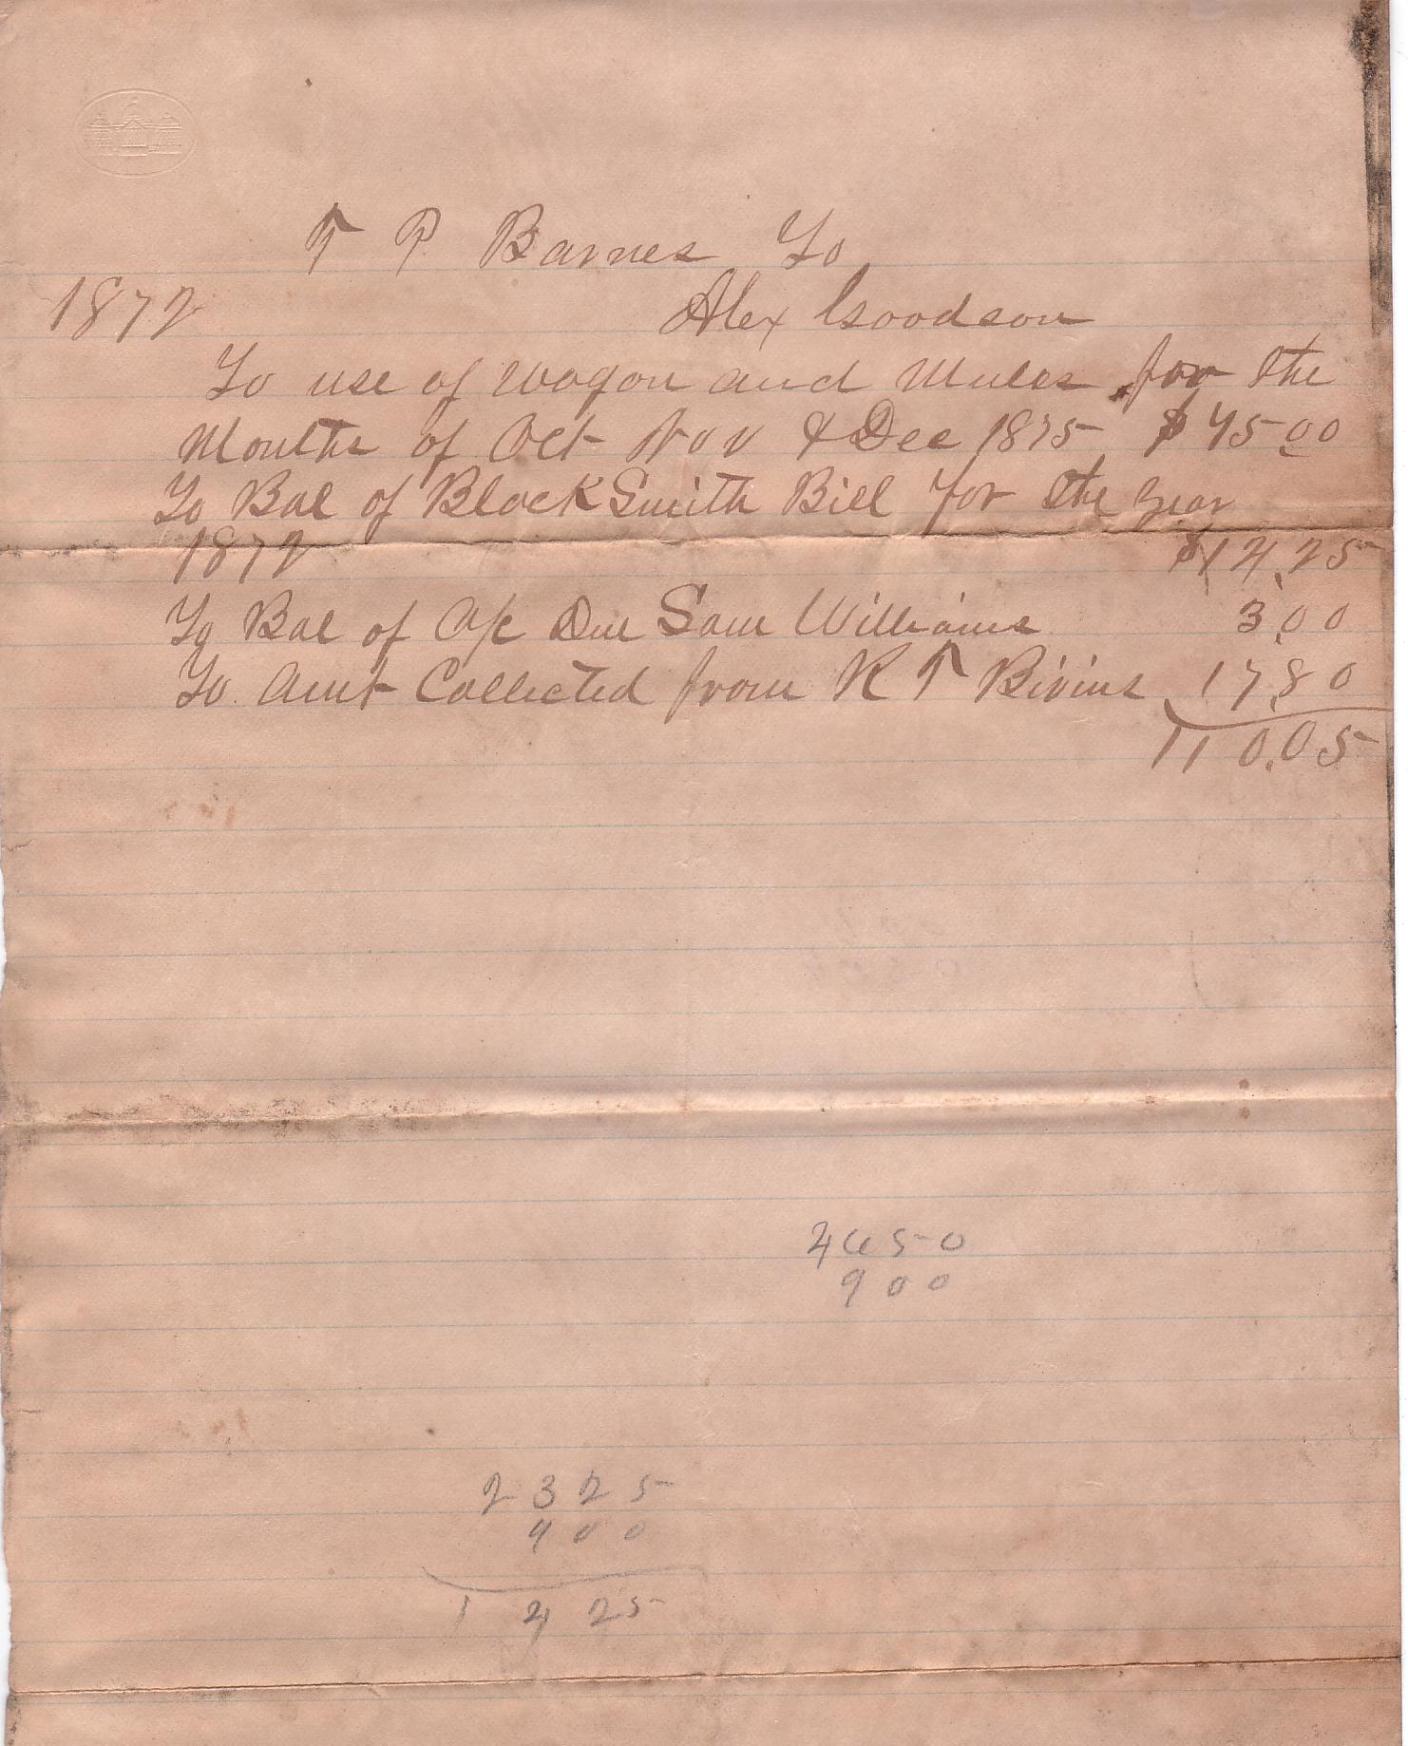 T P Barnes To
1872 Alex Goodson
To use of Wagon and Mules for the
Months of Oct Nov & Dec 1875 $75.00
To Bal of BlackSmith Bill for the year
1872 $14.25
To Bal of A/c Due Sam Williams 3.00
To Amt Collected from R T Bivins 17.80
110.05
4650
900
2325
900
1425